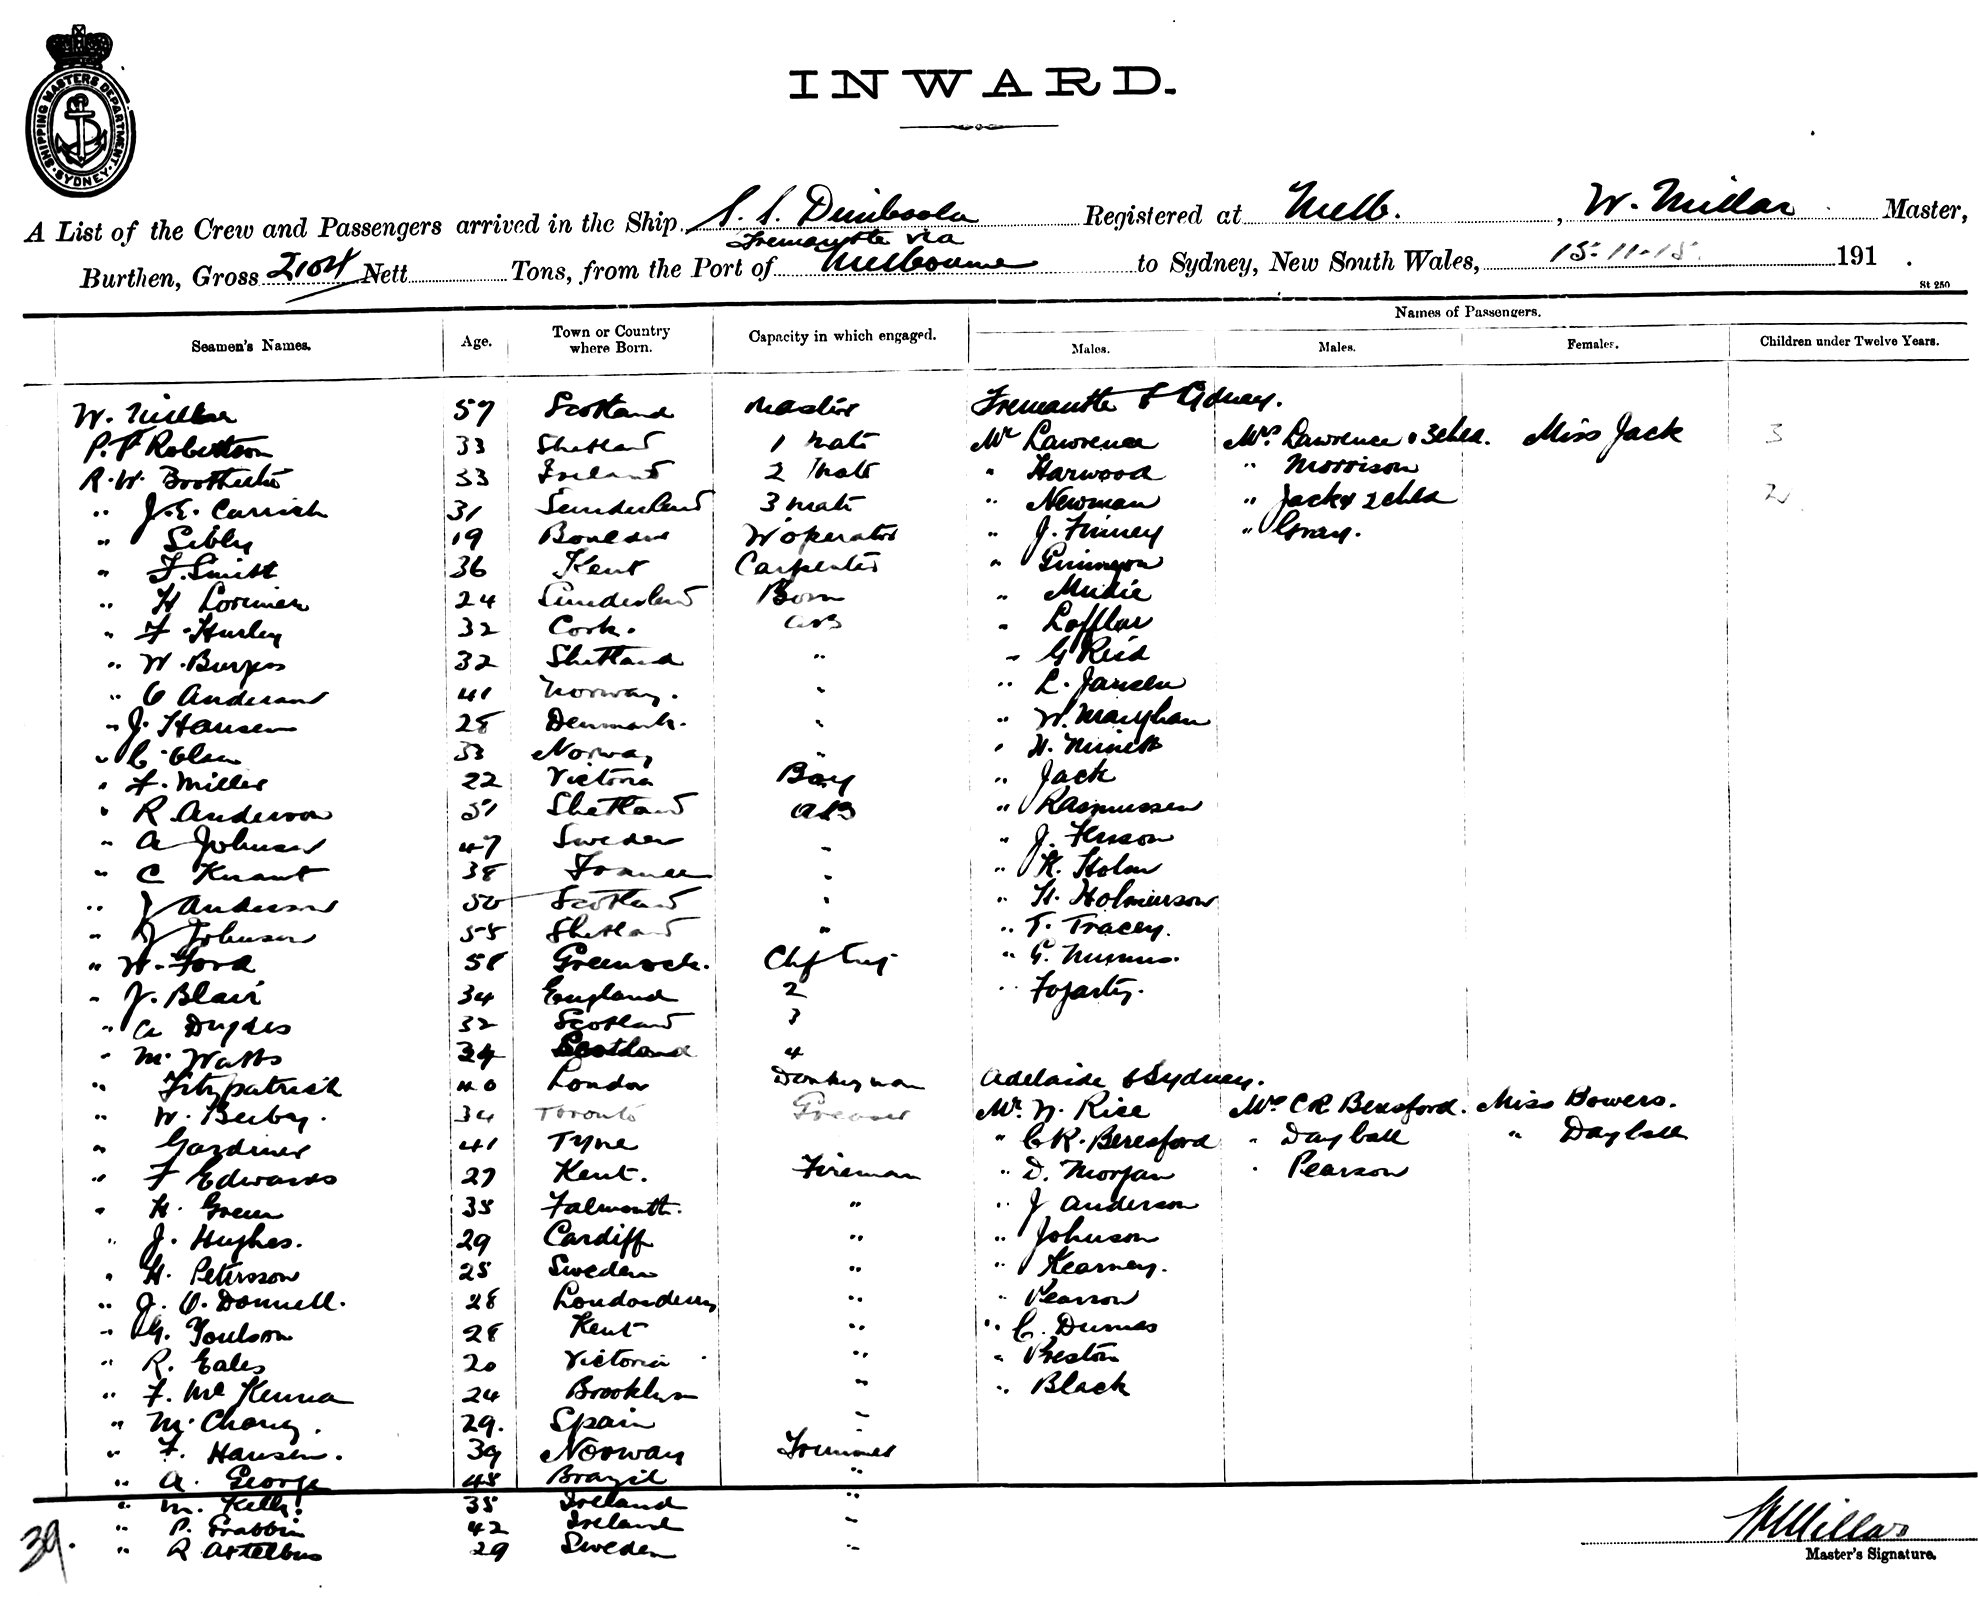 SHIPPING MASTERS DEPARTMENT · SYDNEY ·
INWARD.
A List of the Crew and Passengers arrived in the Ship S.S. Dimboola Registered at Melb. , W. Millar Master,
Fremantle via
Burthen, Gross 2104 Nett Tons, from the Port of Melbourne to Sydney, New South Wales, 15-11-15 191 .
St 250
Names of Passengers.
Seamen's Names. Age. Town or Country where Born. Capacity in which engaged. Males. Males. Females. Children under Twelve Years.
W. Millar 57 Scotland Master Fremantle to Sydney.
P. T Robertson 33 Shetland 1 Mate Mr Lawrence Mrs Lawrence & 3 chld. Miss Jack 3
R. W. 33 Ireland 2 Mate " Harwood " Morrison
" J. E. Carrick 31 Sunderland 3 Mate " Newman " Jack & 2 chld 2
" Sibly 19 W operator " J. Finney " Gray.
" F. Smith 36 Kent Carpenter "
" H Lorimer 24 Sunderland Bosn " Mudie
" F. Hurley 32 Cork. AB " Loffler
" W. Burgess 32 Shetland " " G Reid
" C Anderson 41 Norway. " " L. Jansen
" J. Hansen 28 Denmark. " " W.
" C. Olsen 33 Norway " " H.
" F. Miller 22 Victoria Boy " Jack
" R Anderson 51 Shetland AB " Rasmussen
" A Johnson 47 Sweden " " J.
" C 38 France " " K. Holm
" J Anderson 50 Scotland " " H.
" J Johnson 55 Shetland " " T. Tracey.
" W. Ford 58 Greenock. Chf Eng " G.
" J. Blair 34 England 2 " Fogarty.
" A 32 Scotland 3
" M. Watts 34 Scotland 4
" Fitzpatrick 40 London Donkeyman Adelaide to Sydney.
" W. 34 Toronto Greaser Mr. N. Rice Mrs C R Beresford. Miss Bowers.
" Gardiner 41 Tyne " C R. Beresford " Dayball " Dayball
" F Edwards 27 Kent. Fireman " D. Morgan " Pearson
" H. Green 35 Falmouth. " " J Anderson
" J. Hughes. 29 Cardiff " " Johnson
" H. Petersson 25 Sweden " " Kearney.
" J. O. Donnell. 28 Londonderry " " Pearson
" G. Poulson 28 Kent " " C. Dumas
" R. Eales 20 Victoria " " Preston
" F. McKenna 24 Brooklyn " " Black
" M. 29. Spain "
" F. Hansen. 39 Norway Trimmer
" A. George 48 Brazil "
" M. Kelly. 35 Ireland "
" P. 42 Ireland "
" R 29 Sweden "
39.
W Millar
Master's Signature.